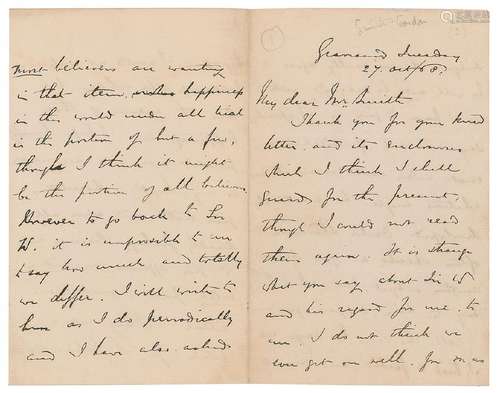 Gravesend Tuesday
27 Oct/68.
My dear Mrs Smith
Thank you for your kind
letter and its enclosures
which I think I shall
for the present,
though I could not read
them again. It is strange
what you say about Sir W
and his regard for me, to
me. I do not think we
ever got on well. for on us
most believers are wanting
in that item, happiness
in this world under all trial
is the portion of but a few,
though I think it might
be the portion of all believers
However to go back to Sir
W. it is impossible to me
to say how much and totally
we differ. I will write to
him as I do periodically
and I have also asked